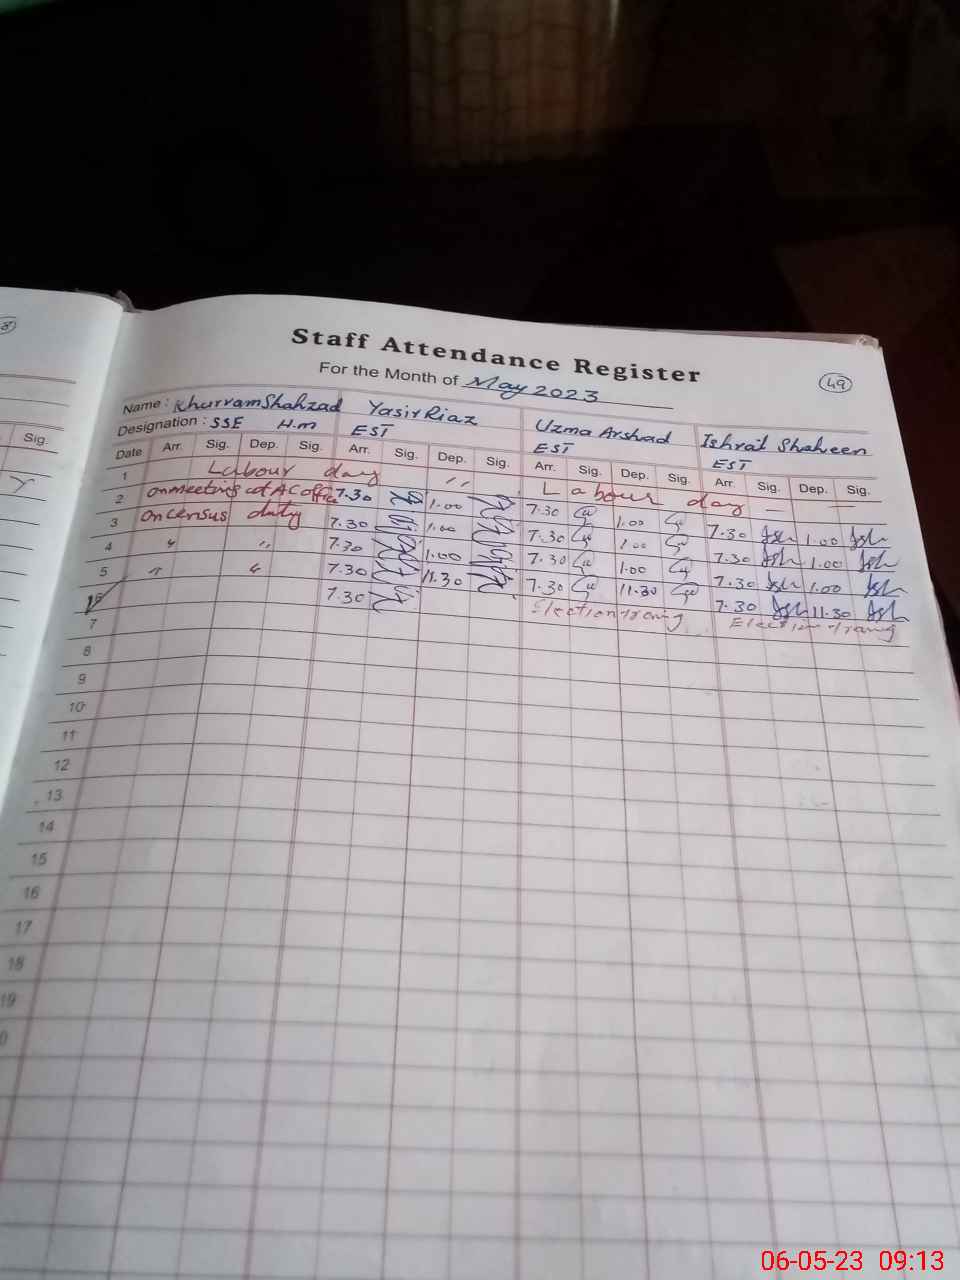 Staff Attendance Register
49
For the Month of May 2023
Name : Khurram Shahzad Yasir Riaz Uzma Arshad Ishrat Shaheen
Designation : SSE H.m EST EST EST
Sig.
Date Arr. Sig. Dep. Sig. Arr. Sig. Dep. Sig. Arr. Sig. Dep. Sig. Arr. Sig. Dep. Sig.
1 Labour day " Labour day — —
2 on meeting at AC office 7.30 1.00 7.30 1.00 7.30 1.00
3 on census duty 7.30 1.00 7.30 1.00 7.30 1.00
4 " " 7.30 1.00 7.30 1.00 7.30 1.00
5 " " 7.30 11.30 7.30 11.30 7.30 11.30
6 7.30 Election Election
7
8
9
10
11
12
13
14
15
16
17
18
19
06-05-23 09:13